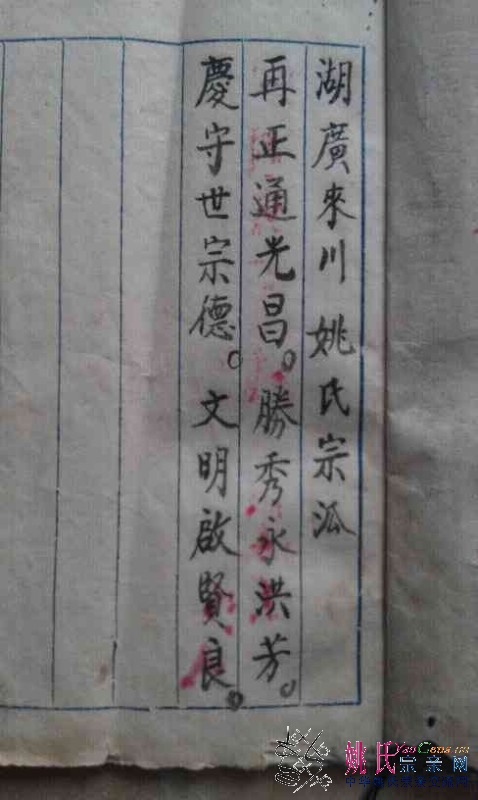 湖廣來川 姚氏宗派
再正通光昌。勝秀永洪芳。
慶守世宗德。文明啟賢良。
姚氏宗亲网